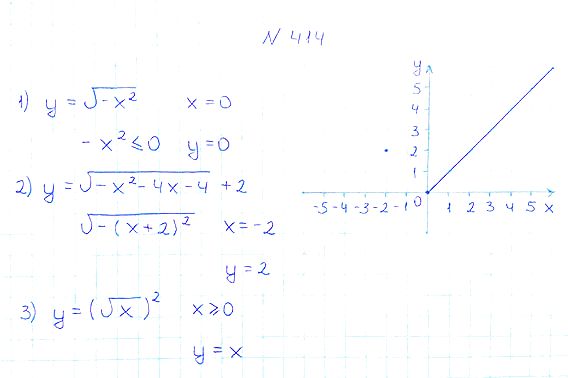 N 414
1) y = √-x² x = 0
- x² ⩽ 0 y = 0
2) y = √-x² - 4x - 4 + 2
√-(x + 2)² x = -2
y = 2
3) y = (√x)² x ⩾ 0
y = x
y
5
4
3
2
1
-5 -4 -3 -2 -1 0 1 2 3 4 5 x